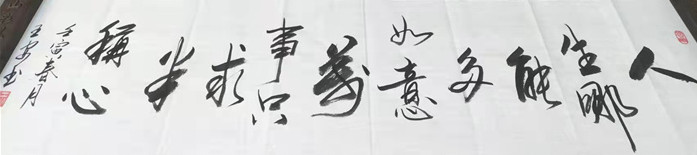 人生哪能多如意萬事只求半稱心
壬寅春月